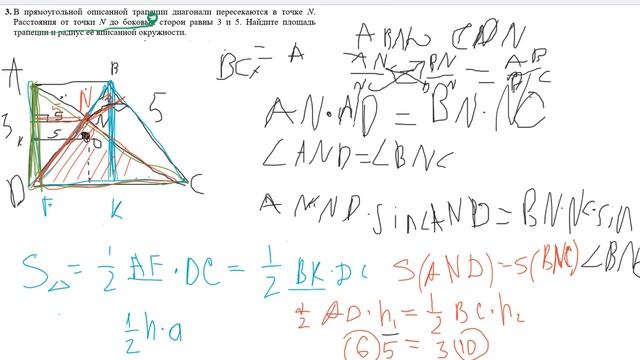 3. В прямоугольной описанной трапеции диагонали пересекаются в точке N.
Расстояния от точки N до боковых сторон равны 3 и 5. Найдите площадь
трапеции и радиус её вписанной окружности.
A B N 5 3 5 5 K O D F K C
BC = A
ABN CDN
AN BN = AB
AN·AD = BN·NC
∠AND=∠BNC
ND·sin∠AND=BN·NC·sin
∠BNC
S△ = 1/2 AF·DC = 1/2 BK·DC
1/2 h·a
S(AND)=S(BNC)
1/2 AD·h₁=1/2 BC·h₂
(6)5 = 3(10)